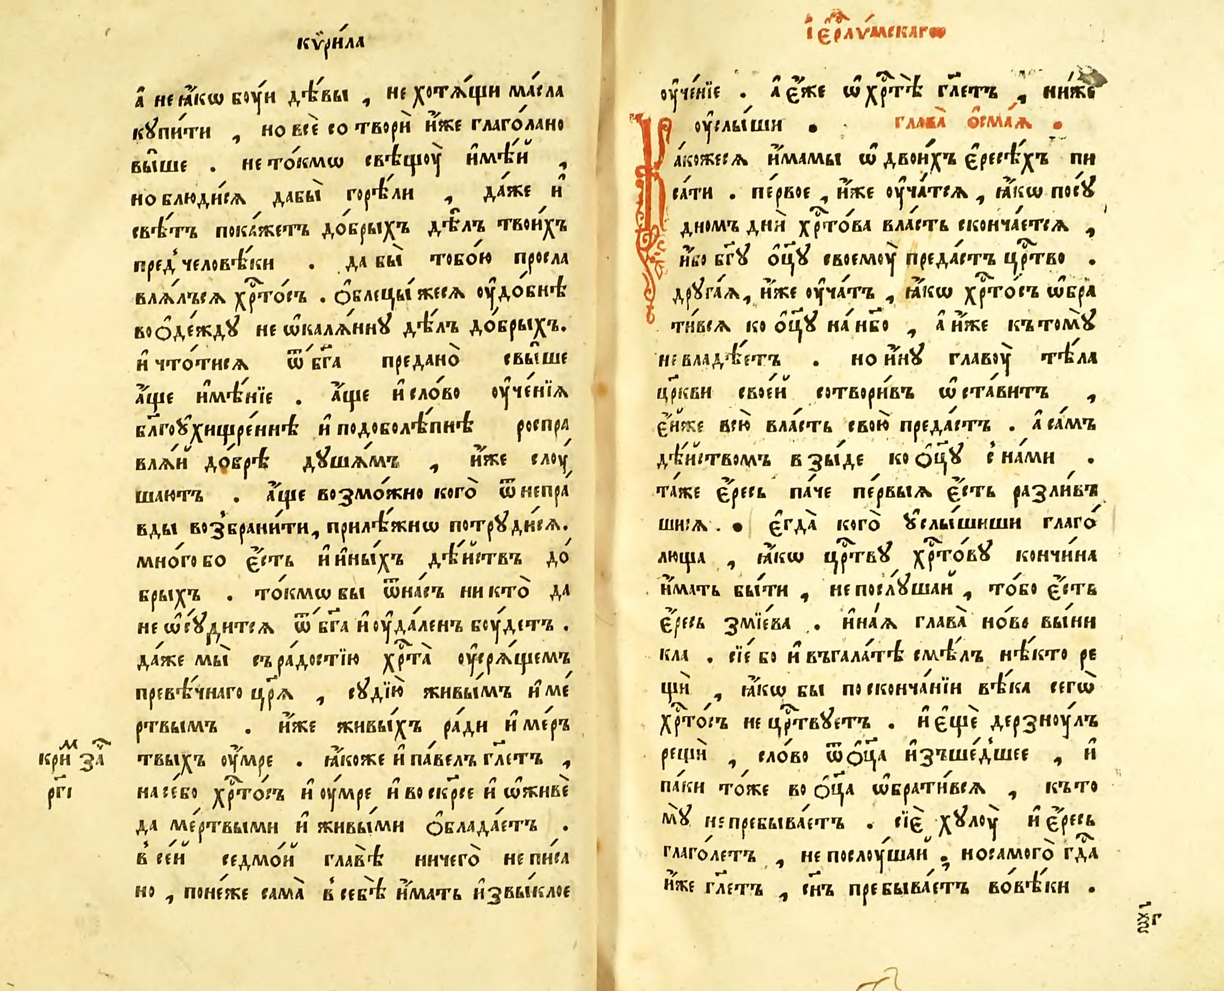 кѷри́ла
а҆ не ꙗ҆́кѡ бѹ́и дѣ́вы , не хотѧ́щи ма́сла
кꙋпи́ти , но всѐ со творѝ и҆́же глаго́лано
вы́ше . не то́кмѡ свѣщѹ̀ и҆мѣ́й ,
но блюди́сѧ дабы̀ горѣ́ли , да́же и҆
свѣ́тъ пока́жетъ до́брыхъ дѣ́лъ твои́хъ
пред̾ человѣ́ки . да бы̀ тобо́ю просла
влѧ́лъсѧ хрⷭ҇то́съ . ѻ҆блецы́ жесѧ ѹ҆до́бнѣ
во ѻ҆де́ждꙋ не ѡ҆калѧ́ннꙋ дѣ́лъ до́брыхъ.
и҆ что́тисѧ ѿ бг҃а предано̀ свы́ше
а҆́ще и҆мѣ́нїе . а҆́ще и҆ сло́во ѹ҆че́нїѧ
бл҃гоѹхищре́ннѣ и҆ подоболѣ́пнѣ роспра
влѧ́й до́брѣ дꙋшѧ́мъ , и҆́же слѹ́
шаютъ . а҆́ще возмо́жно кого̀ ѿ непра́
вды воз̾брани́ти, прилѣ́жнѡ потрꙋди́сѧ.
мно́го бо є҆́сть и҆ и҆ны́хъ дѣ́йствъ до́
брыхъ . то́кмѡ бы ѿна́съ никто̀ да
не ѡ҆сꙋ́дитсѧ ѿ бг҃а и҆ ѹ҆да́ленъ бѹ́детъ .
да́же мы̀ съ ра́достїю хрⷭ҇та̀ ѹ҆срѧ́щемъ
превѣ́чнаго цр҃ѧ̀ , сꙋдїю̀ живы́мъ и҆ ме́
ртвымъ . и҆́же живы́хъ ра́ди и҆ ме́ръ
твыхъ ѹ҆́мре . ꙗ҆́коже и҆ па́велъ гл҃етъ ,
на се́бо хрⷭ҇то́съ и҆ ѹ҆́мре и҆ воскр҃се и҆ ѡ҆живѐ
да ме́ртвыми и҆ живы́ми ѻ҆блада́етъ .
в̾ се́й седмо́й главѣ̀ ничего̀ не писа
но , поне́же сама̀ в̾ себѣ̀ и҆́мать и҆звы́клое
кри́ м за́ а҇
рг҃і
і҆ерⷭ҇лѵ́мскагѡ
ѹ҆че́нїе . а҆ є҆́же ѡ҆ хрⷭ҇тѣ̀ гл҃етъ , ни́же
ѹ҆слы́ши . глава̀ ѻ҆сма́ѧ .
Ка́кожесѧ и҆́мамы ѡ҆ двои́хъ є҆ресѣ́хъ пи
са́ти . пе́рвое , и҆́же ѹ҆ча́тсѧ , ꙗ҆́кѡ по сꙋ́
дномъ днѝ хрⷭ҇то́ва вла́сть сконча́етсѧ ,
и҆́бо бг҃ꙋ ѻ҆ц҃ꙋ̀ своемѹ̀ преда́стъ црⷭ҇тво .
дрꙋга́ѧ, и҆́же ѹ҆ча́тъ , ꙗ҆́кѡ хрⷭ҇то́съ ѡ҆бра
ти́всѧ ко ѻ҆ц҃ꙋ̀ на нб҃о , а҆ и҆́же к̾томꙋ̀
не владѣ́етъ . но и҆́нꙋ главѹ̀ тѣ́ла
цр҃кви свое́й сотвори́въ ѡ҆ста́витъ ,
є҆́йже всю̀ вла́сть свою̀ преда́стъ . а҆ са́мъ
дѣ́йствомъ взы́де ко ѻ҆ц҃ꙋ̀ с̾ на́ми .
та́же є҆́ресь па́че пе́рвыѧ є҆́сть разли́въ
шисѧ . є҆гда̀ кого̀ ꙋ҆слы́шиши глаго́
люща , ꙗ҆́кѡ црⷭ҇твꙋ хрⷭ҇то́вꙋ кончи́на
и҆́мать бы́ти , не послꙋ́шай , то́бо є҆́сть
є҆́ресь змїе́ва . и҆на́ѧ глава̀ но́во вы́ни
кла . сїе́ бо и҆ въ гала́тѣ смѣ́лъ нѣ́кто ре
щѝ , ꙗ҆́кѡ бы по сконча́нїи вѣ́ка сегѡ̀
хрⷭ҇то́съ не црⷭ҇твꙋетъ . и҆ є҆щѐ дерзнѹ́лъ
рещѝ , сло́во ѿ ѻ҆ц҃а̀ и҆зъше́дшее , и҆
па́ки то́же во ѻ҆ц҃а̀ ѡ҆брати́всѧ , к̾то
мꙋ̀ не пребыва́етъ . сїѐ хꙋлѹ̀ и҆ є҆́ресь
глаго́летъ , не послѹ́шай , но самого̀ гдⷭ҇а
и҆́же гл҃етъ , сн҃ъ пребыва́етъ во́вѣки .